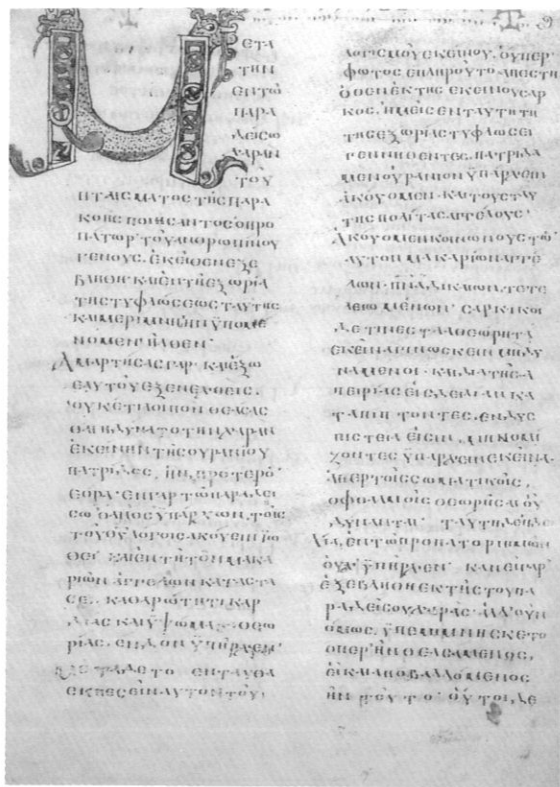 ΜΕΤΑ
ΤΗΝ
ΕΝΤΩ
ΠΑΡΑ
ΔΕΙΣΩ
ΧΑΡΑΝ
ΤΟΥ
ΠΤΑΙΣΜΑΤΟΣ ΤΗΣ ΠΑΡΑ
ΚΟΗΣ ΠΟΙΗΣΑΝΤΟΣ Ο ΠΡΟ
ΠΑΤΩΡ ΤΟΥ ΑΝΘΡΩΠΙΝΟΥ
ΓΕΝΟΥΣ, ΕΚΕΙΘΕΝ ΕΞΕ
ΒΛΗΘΗ ΚΑΙ ΕΝ ΤΗ ΕΞΩΡΙΑ
ΤΗΣ ΤΥΦΛΩΣΕΩΣ ΤΑΥΤΗΣ
ΚΑΙ ΜΕΡΙΜΝΗ ΗΝ ΥΠΟΜΕ
ΝΟΜΕΝ ΗΛΘΕΝ·
ΑΜΑΡΤΗΣΑΣ ΓΑΡ ΚΑΙ ΕΞΩ
ΕΑΥΤΟΥ ΕΞΕΝΕΧΘΕΙΣ,
ΟΥΚΕΤΙ ΛΟΙΠΟΝ ΘΕΑΣΑΣ
ΘΑΙ ΗΔΥΝΑΤΟ ΤΗΝ ΧΑΡΑΝ
ΕΚΕΙΝΗΝ ΤΗΣ ΟΥΡΑΝΙΟΥ
ΠΑΤΡΙΔΟΣ, ΗΝ ΠΡΟΤΕΡΟΝ
ΕΩΡΑ· ΕΝ ΓΑΡ ΤΩ ΠΑΡΑΔΕΙ
ΣΩ Ο ΑΝΟΣ ΥΠΑΡΧΩΝ, ΤΟΙΣ
ΤΟΥ ΘΥ ΛΟΓΟΙΣ ΑΚΟΥΕΙΝ ΕΙΩ
ΘΕΙ· ΚΑΙ ΕΝ ΤΗ ΤΩΝ ΜΑΚΑ
ΡΙΩΝ ΑΓΓΕΛΩΝ ΚΑΤΑΣΤΑ
ΣΕΙ, ΚΑΘΑΡΩΤΗΤΙ ΚΑΡ
ΔΙΑΣ ΚΑΙ ΥΨΩΜΑΤΙ ΘΕΩ
ΡΙΑΣ, ΕΝΔΟΝ ΥΠΗΡΧΕΝ·
ΕΝΤΑΥΘΑ
ΕΚΠΕΣΕΙΝ ΑΥΤΟΝ ΤΟΥ
ΛΟΓΙΣΜΟΥ ΕΚΕΙΝΟΥ, ΟΥΠΕΡ
ΦΩΤΟΣ ΕΠΛΗΡΟΥΤΟ ΑΠΕΣΤΗ·
ΟΘΕΝ ΕΚ ΤΗΣ ΕΚΕΙΝΟΥ ΣΑΡ
ΚΟΣ, ΗΜΕΙΣ ΕΝ ΤΑΥΤΗ ΤΗ
ΤΗΣ ΕΞΩΡΙΑΣ ΤΥΦΛΩΣΕΙ
ΓΕΝΝΗΘΕΝΤΕΣ, ΠΑΤΡΙΔΑ
ΜΕΝ ΟΥΡΑΝΙΟΝ ΥΠΑΡΧΕΙΝ
ΑΚΟΥΟΜΕΝ· ΚΑΙ ΤΟΥΣ ΤΑΥ
ΤΗΣ ΠΟΛΙΤΑΣ ΑΓΓΕΛΟΥΣ·
ΑΚΟΥΟΜΕΝ ΚΟΙΝΩΝΟΥΣ ΤΩΝ
ΑΥΤΩΝ ΜΑΚΑΡΙΩΝ ΑΓΓΕ
ΛΩΝ ΠΝΑ ΔΙΚΑΙΩΝ, ΤΕΤΕ
ΛΕΙΩΜΕΝΩΝ· ΣΑΡΚΙΚΟΙ
ΔΕ ΤΙΝΕΣ ΤΑ ΑΘΕΩΡΗΤΑ
ΕΚΕΙΝΑ ΓΙΝΩΣΚΕΙΝ ΜΗ ΔΥ
ΝΑΜΕΝΟΙ
ΠΕΙΡΙΑΣ
ΤΑΠΙΠΤΟΝΤΕΣ, ΕΝ ΔΥΣ
ΠΙΣΤΕΙΑ ΕΙΣΙΝ
ΥΠΑΡΧΕΙΝ ΕΚΕΙΝΑ
ΑΠΕΡ ΤΟΙΣ ΣΩΜΑΤΙΚΟΙΣ,
ΟΦΘΑΛΜΟΙΣ ΘΕΩΡΗΣΑΙ ΟΥ
ΔΥΝΑΝΤΑΙ· ΤΑΥΤΗ ΔΕ Η ΔΕΙ
ΛΙΑ, ΕΝ ΤΩ ΠΡΟΠΑΤΟΡΙ ΗΜΩΝ
ΟΥΧ ΥΠΗΡΧΕΝ· ΚΑΝ ΓΑΡ
ΕΞΕΒΛΗΘΗ ΕΚ ΤΗΣ ΤΟΥ ΠΑ
ΡΑΔΕΙΣΟΥ ΧΑΡΑΣ, ΑΛΛ ΟΥΝ
ΟΜΩΣ, ΥΠΕΜΙΜΝΗΣΚΕΤΟ
ΟΠΕΡ ΗΝ ΘΕΑΣΑΜΕΝΟΣ,
ΕΙ ΚΑΙ ΑΠΟΒΑΛΛΟΜΕΝΟΣ
ΗΝ ΤΟΥΤΟ· ΟΥΤΟΙ ΔΕ